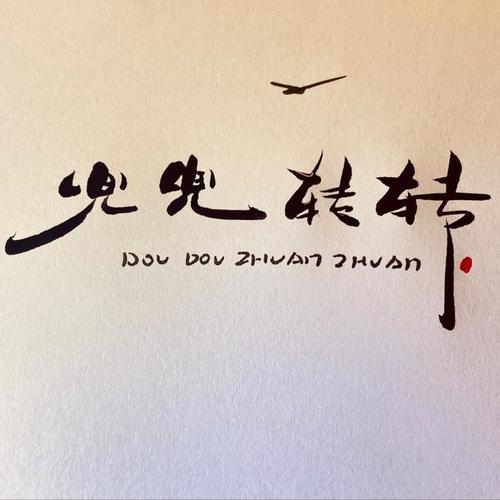 兜兜转转
DOU DOU ZHUAN ZHUAN